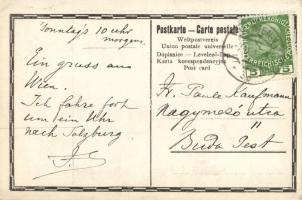 Sonntag's 10 uhr
morgen.
Ein gruss aus
Wien.
Ich fahre fort
um ein Uhr
nach Salzburg
Postkarte — Carte postale
Weltpostverein
Union postale universelle
Dopisnice — Levelező-Lap
Karta korespondencyjna
Post card
Fr. Paula Kaufmann
Nagymező utca
Buda Pest
5 5